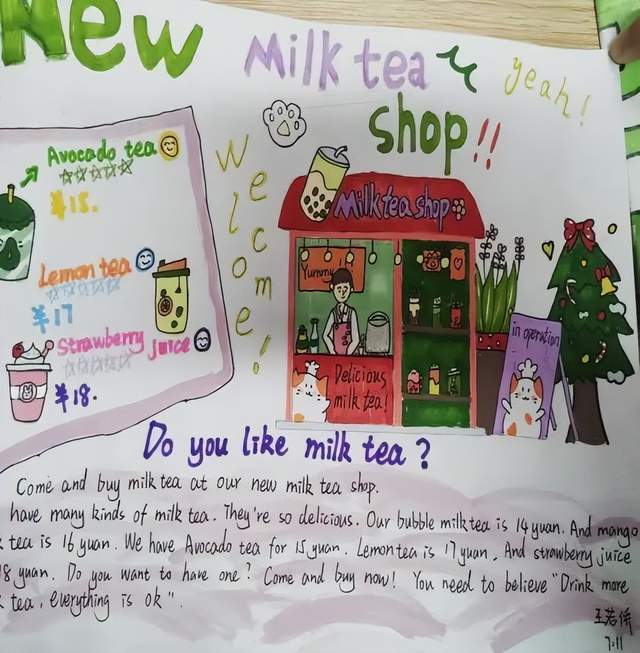 New
Milk tea
yeah!
shop!!
Avocado tea
¥15.
Lemon tea
¥17
Strawberry juice
¥18.
Welcome!
Milk tea shop
Yummy
Delicious
milk tea!
in operation
Do you like milk tea?
Come and buy milk tea at our new milk tea shop.
have many kinds of milk tea. They're so delicious. Our bubble milk tea is 14 yuan. And mango
tea is 16 yuan. We have Avocado tea for 15 yuan. Lemon tea is 17 yuan. And strawberry juice
8 yuan. Do you want to have one? Come and buy now! You need to believe "Drink more
tea, everything is ok".
7.11